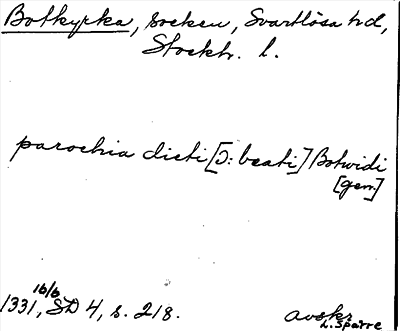 Botkyrka, socken, Svartlösa hd,
Stockh. l.
parochia dicti [ɔ: beati] Botwidi
[gen.]
16/6
1331, SD 4, s. 218.
avskr.
L. Sparre